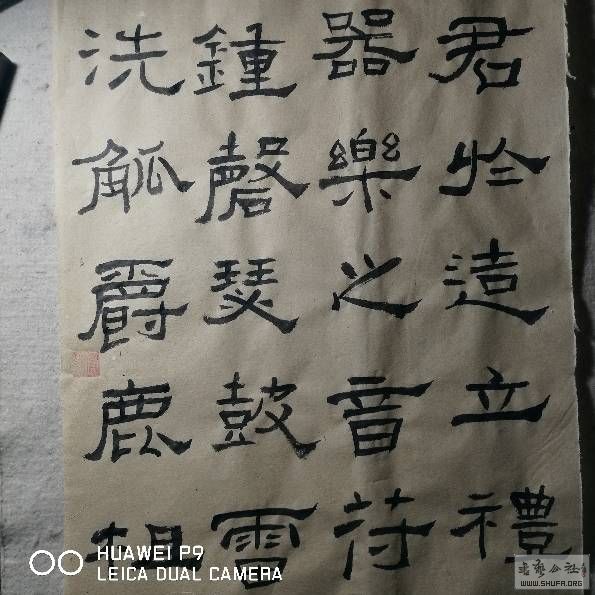 君於造立禮
器樂之音符
鍾磬瑟鼓雷
洗觚爵鹿柤
HUAWEI P9
LEICA DUAL CAMERA
书艺公社
WWW.SHUFA.ORG